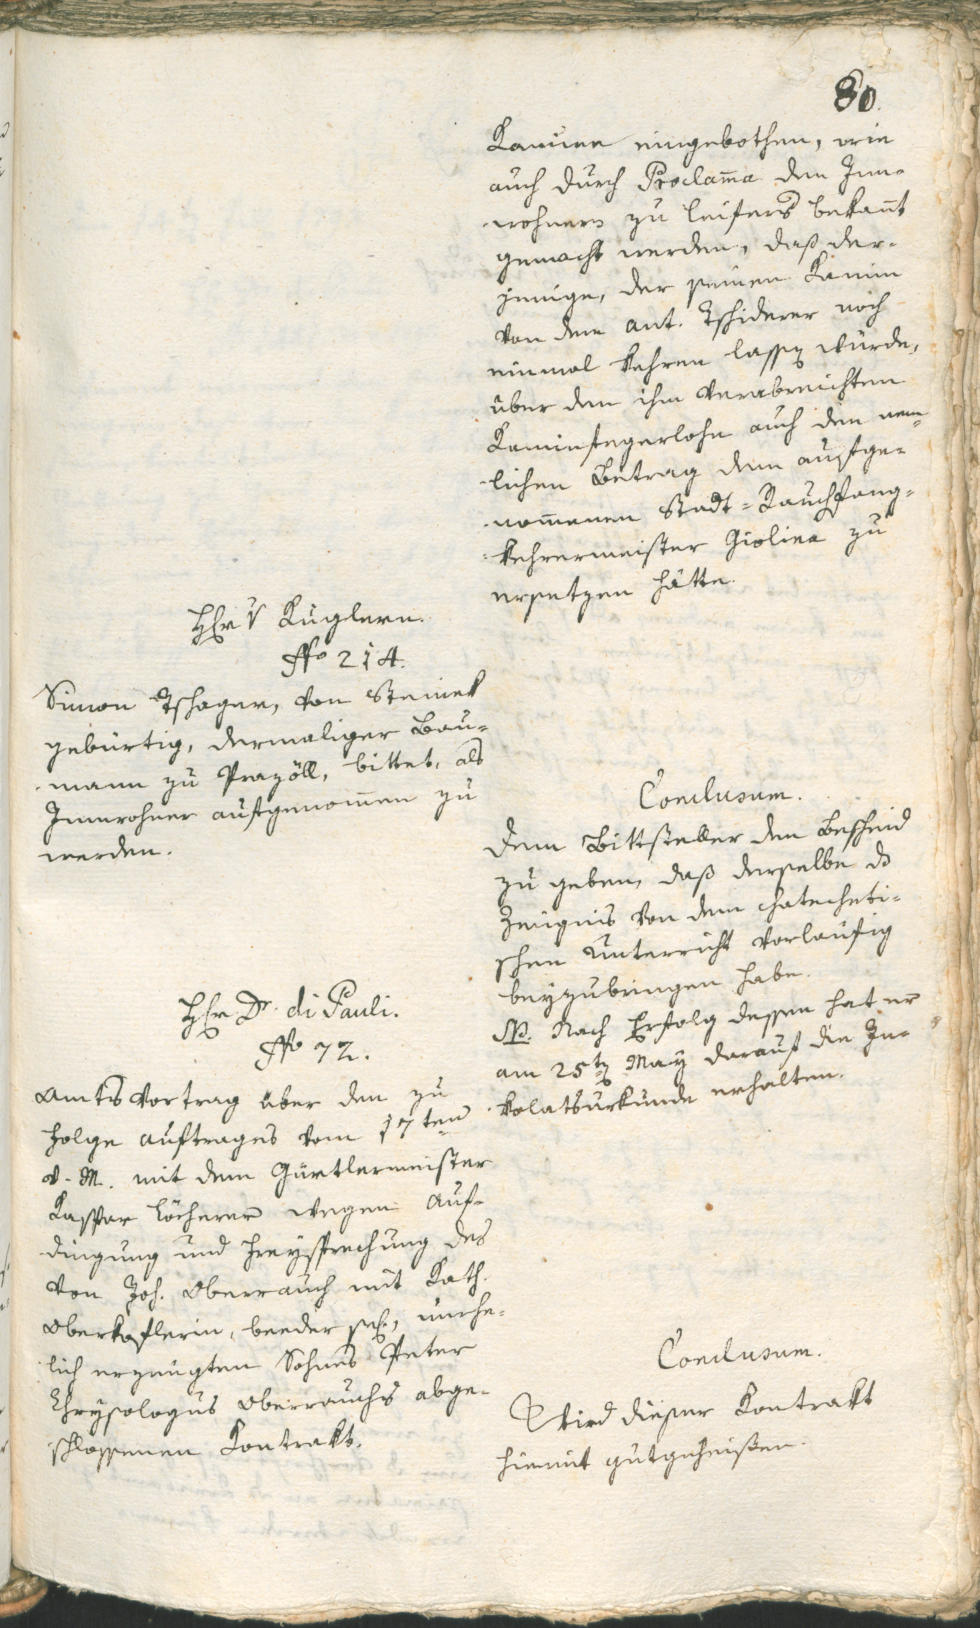 80.
Kamine eingebothen, wie
auch durch Proclam̅a den Inn-
wohnern zu Leifers bekan̅t
gemacht werden, daß der-
jenige, der seinen Kamin
von dem Ant. Tschiderer noch
einmal kehren lassen würde,
über den ihm verabreichten
Kaminfegerlohn auch den nem-
lichen Betrag dem aufge-
nom̅enen Stadt-Rauchfang-
kehrermeister Giolina zu
ersetzen hätte.
H[err] v Kuglern.
ffo 214.
Simon Tschager, von Steinek
gebürtig, dermaliger Bau-
mann zu Prazöll, bittet, als
Innwohner aufgenom̅en zu
werden.
Conclusum.
Dem Bittsteller den Bescheid
zu geben, daß derselbe ds
Zeugnis von dem chatecheti-
schen Unterricht vorläufig
beyzubringen habe.
NB. Nach Erfolg dessen hat er
am 25ten May darauf die In-
kolatsurkunde erhalten.
Hr Dr. di Pauli.
ffo 72.
Amtsvortrag über den zu
Folge Auftrages vom 17ten
v. M. mit dem Gürtlermeister
Kaspar Löcherer wegen Auf-
dingung und Freysprechung des
von Joh. Oberrauch mit Kath.
Oberkoflerin, beeder sel., unehe-
lich erzeugten Sohnes Peter
Chrysologus Oberrauchs abge-
schlossenen Kontrakt.
Conclusum.
Wird dieser Kontrakt
hiemit gutgeheißen.